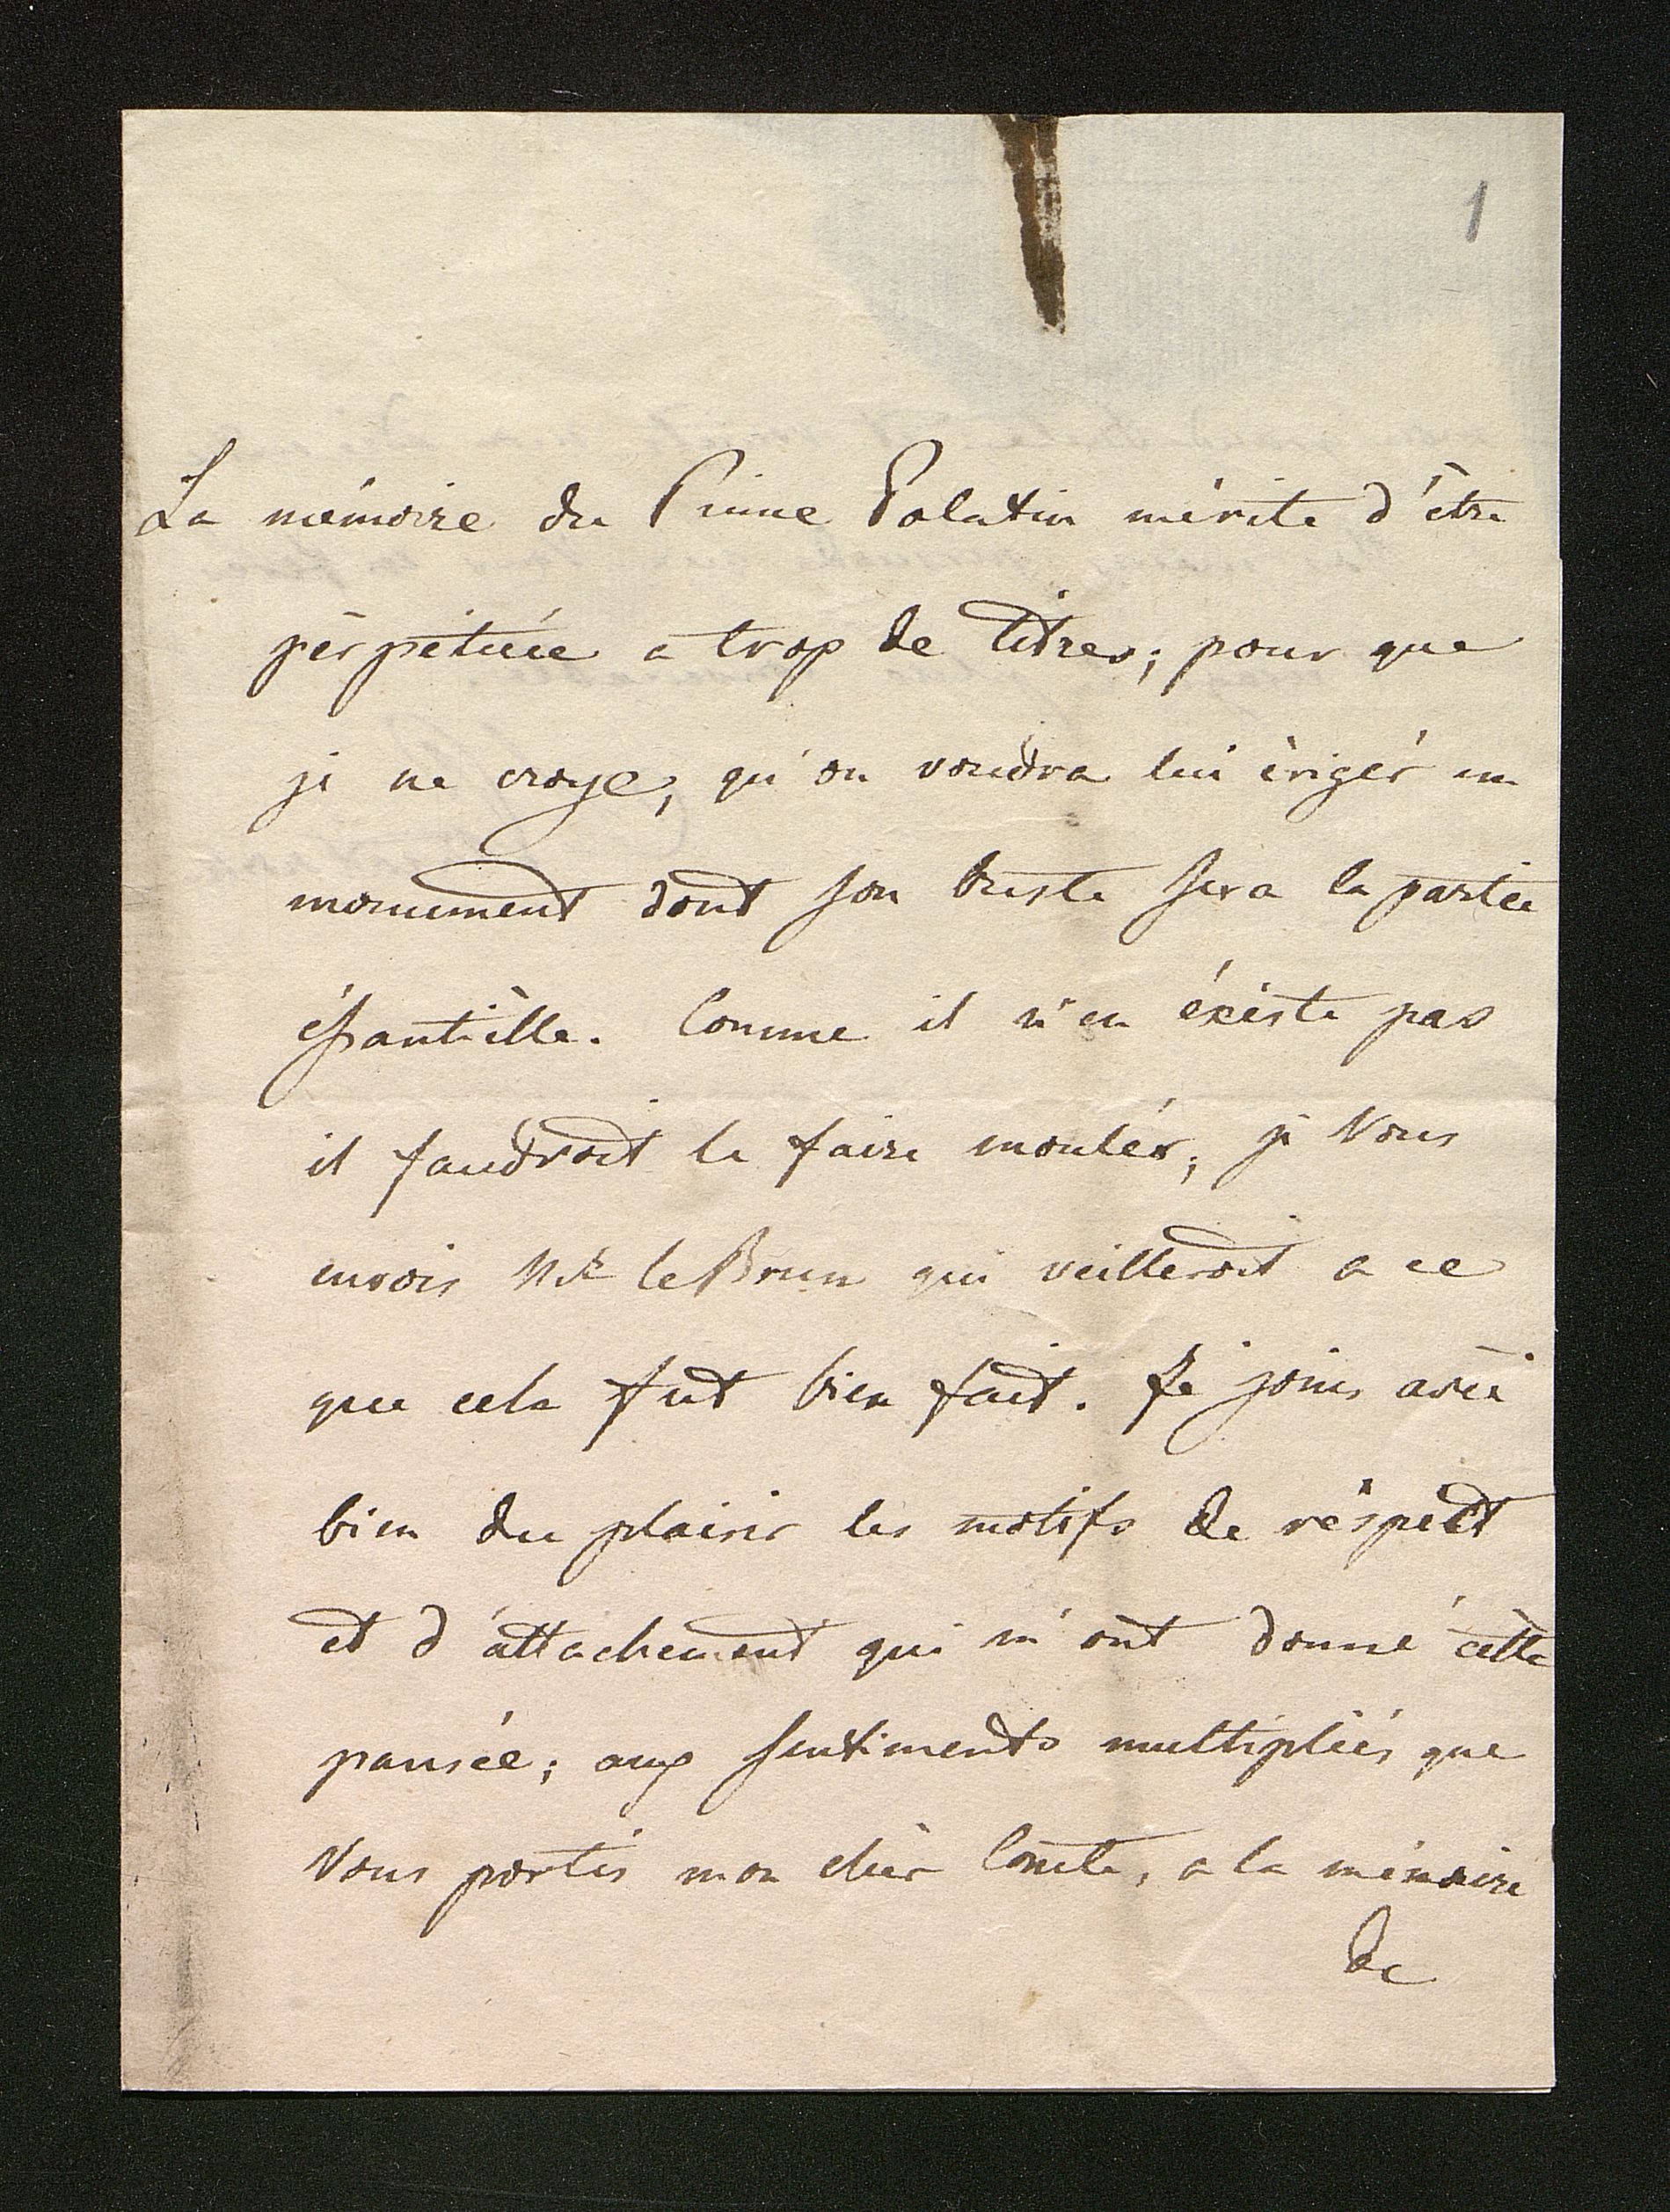 1
La mémoire du Prince Palatin mérite d'être
pérpétuée a trop de titres; pour que
je ne croye, qu'on voudra lui ériger un
monument dont son buste sera la partie
éssantièlle. Comme il n'en éxiste pas
il faudroit le faire mouler; je Vous
envois Mr. le Brun qui veilleroit a ce
que cela fut bien fait. Je joins avéc
bien du plaisir les motifs de réspéct
et d'attachement qui m'ont donné cette
pansée; aux sentiments multipliés que
Vous portés mon chèr Comte, a la mémoire
de